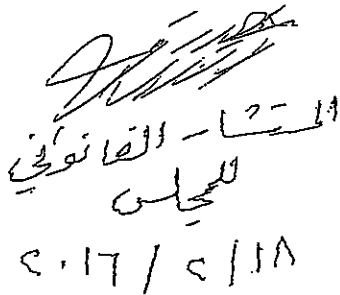 المستشار القانوني
للمجلس
٢٠١٦ / ٢ / ١٨